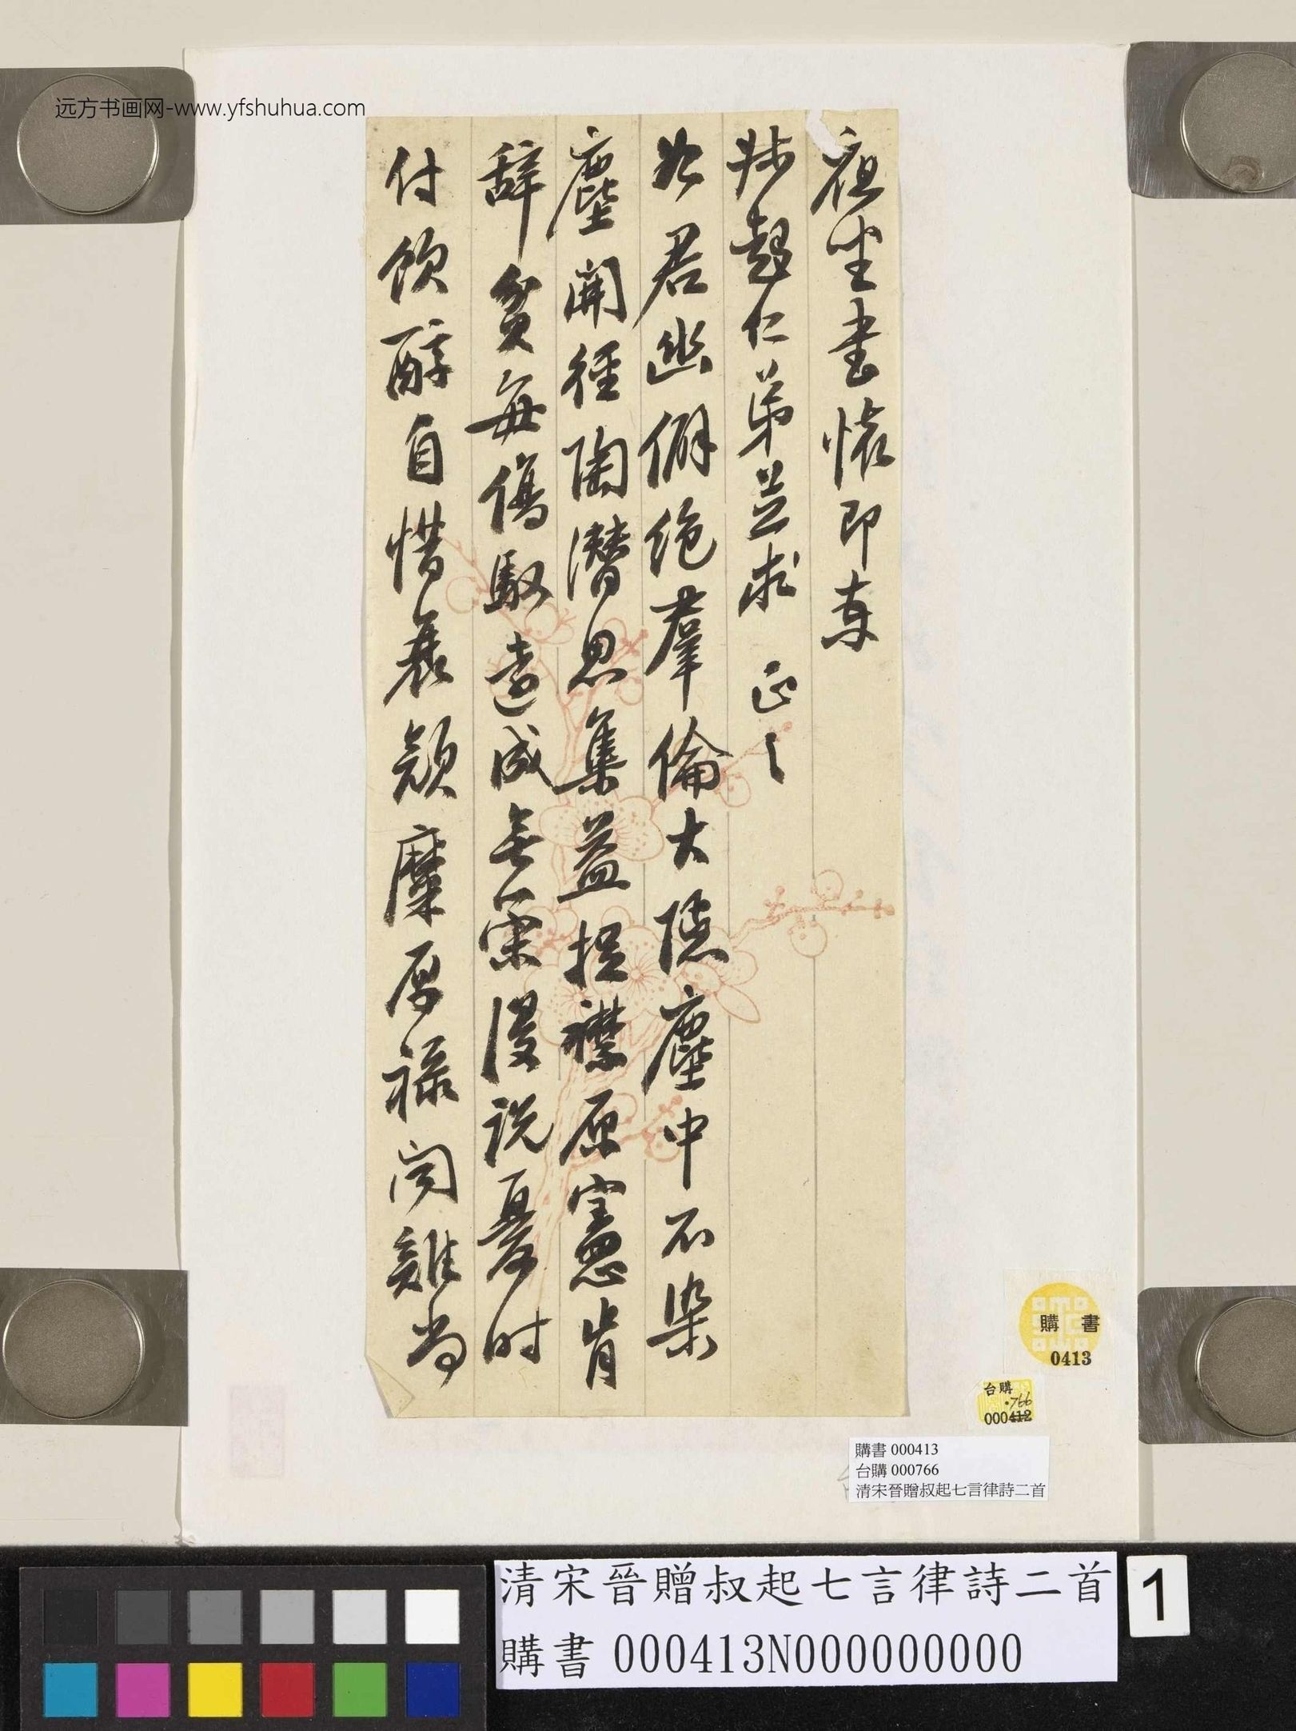 远方书画网-www.yfshuhua.com
夜坐書懷即柬
叔起仁弟並求 正之
如君幽僻絕羣倫大隱塵中不染
塵開徑陶潛思集益捉襟原憲肯
辭貧每傷馭遠成無策漫說憂時
付飲醇自惜衰顏糜厚祿聞雞尚
購書
0413
台購
766
000412
購書 000413
台購 000766
清宋晉贈叔起七言律詩二首
清宋晉贈叔起七言律詩二首
購書 000413N000000000
1